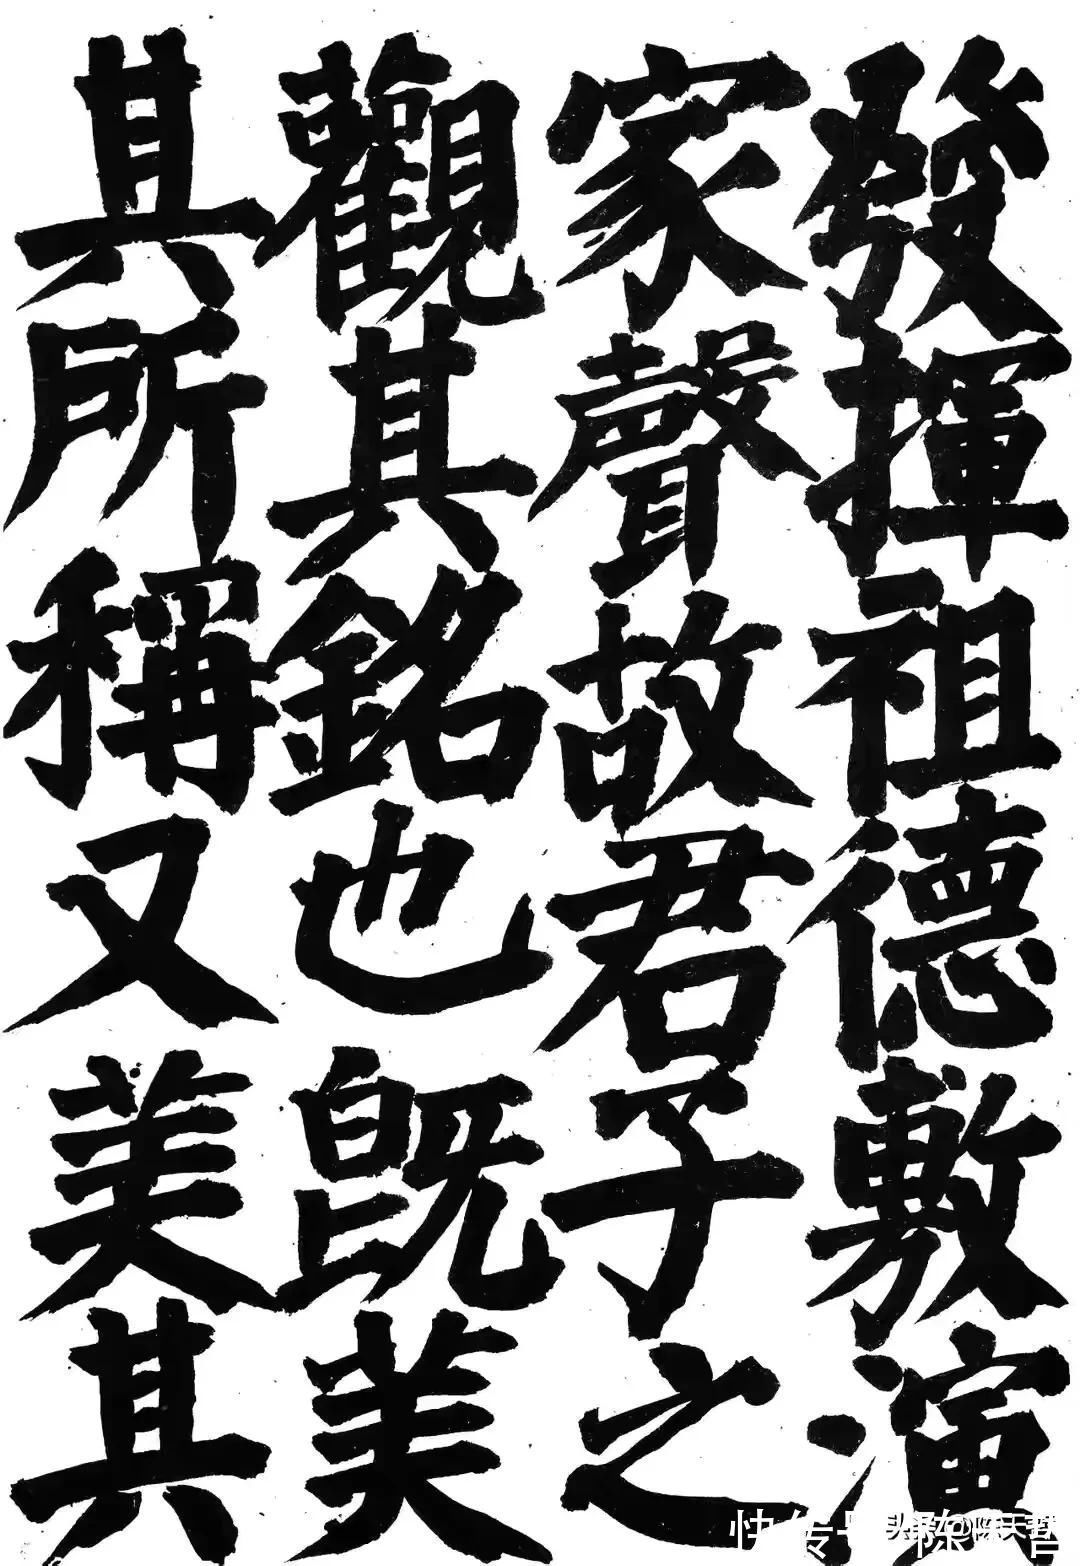 發揮祖德敷演
家聲故君子之
觀其銘也既美
其所稱又美其
快传号
头条@陈天哲